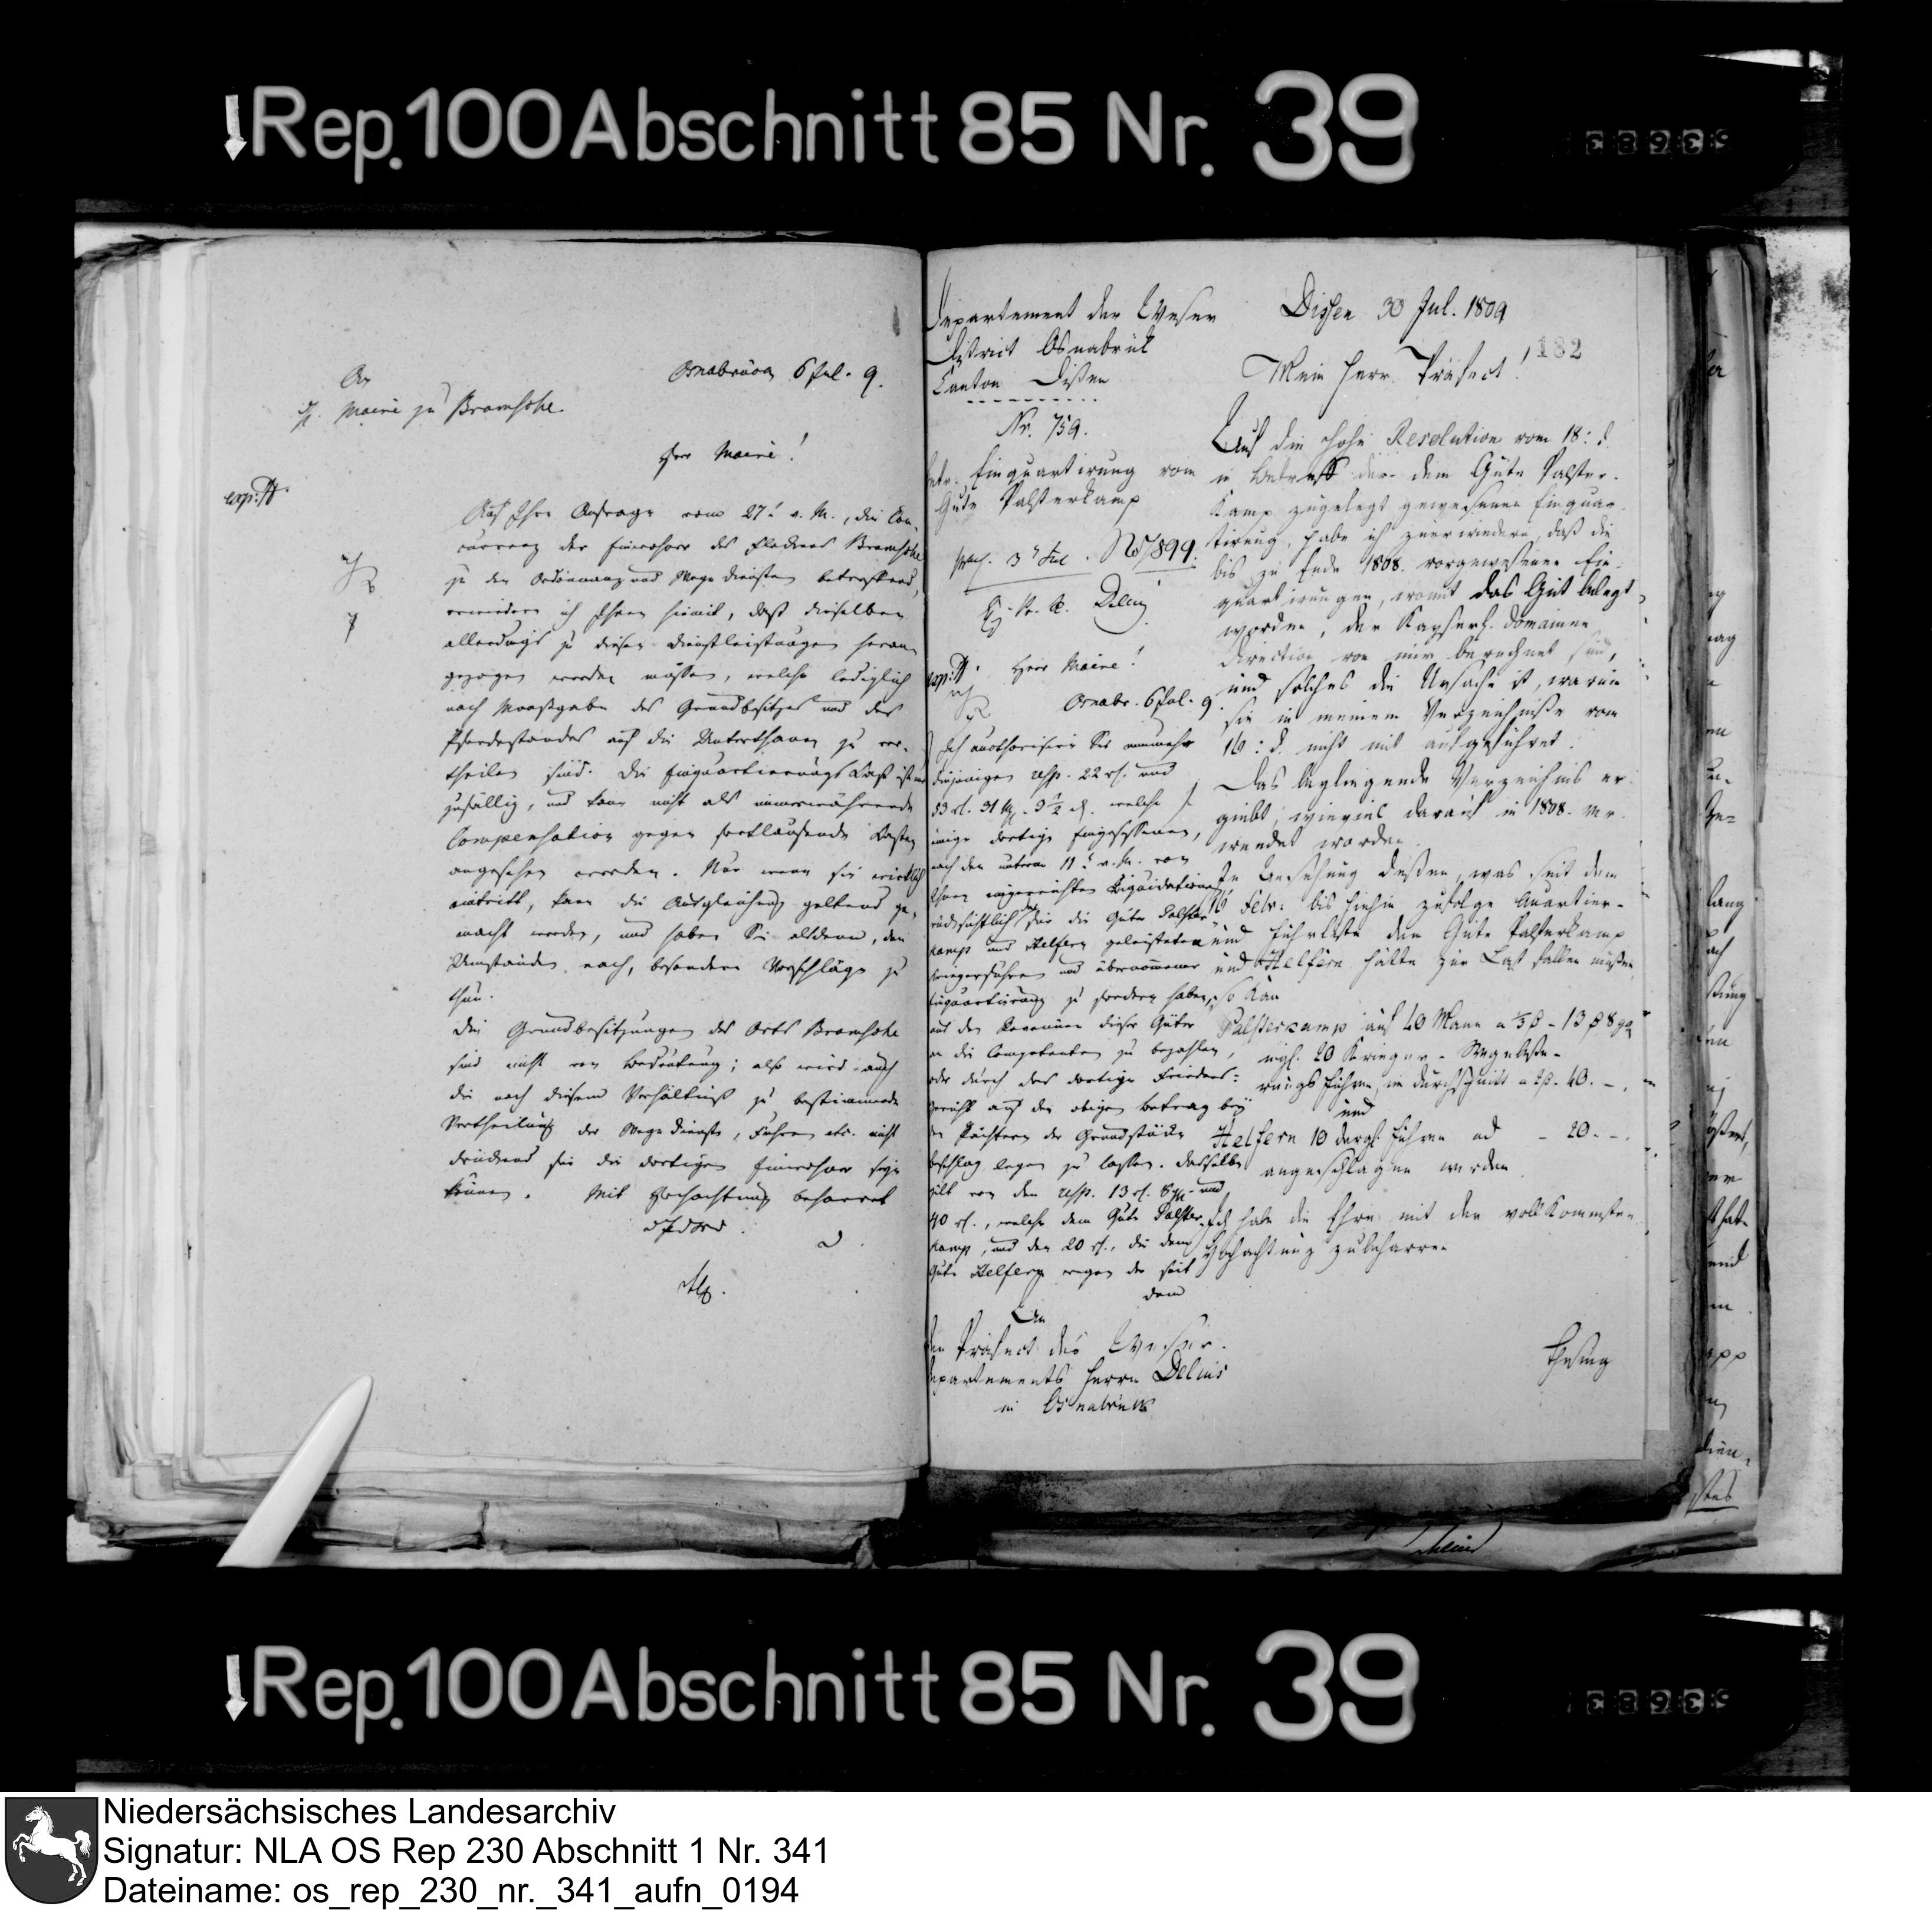 Rep. 100 Abschnitt 85 Nr. 39
An
H. Maire zu Bramsche
Osnabrück 6 Jul. 9.
Herr Maire!
exp.
Auf Ihre Anfrage vom 27t v. M., die Con-
currenz der Einwohner des Fleckens Bramsche
zu den Ordonnanz und Wege Diensten betreffend,
erwiedere ich Ihnen hiemit, daß dieselben
allerdings zu diesen Dienstleistungen heran-
gezogen werden müssen, welche lediglich
nach Maasgabe des Grundbesitzes und des
Pferdestandes auf die Unterthanen zu ver-
theilen sind. Die Einquartierungs Last ist nur
zufällig, und kann nicht als immerwährende
Compensation gegen fortlaufende Lasten
angesehen werden. Nur wenn sie wirklich
eintritt, kann die Ausgleichung geltend ge-
macht werden, und haben Sie alsdann, den
Umständen nach, besondere Vorschläge zu
thun.
Die Grundbesitzungen des Orts Bramsche
sind nicht von Bedeutung; also wird auch
die nach diesem Verhältniß zu bestimmende
Vertheilung der Wege Dienste, Fuhren etc. nicht
drückend für die dortigen Einwohner seyn
können. Mit Hochachtung beharret
Departement der Weser
District Osnabrück
Canton Dißen
Nr. 759.
betr. Einquartirung vom
Gute Palsterkamp
praes. 3t Jul. No 7899.
H. Pr. R. Delius
exp. Herr Maire!
Osnabr. 6 Jul. 9.
Ich authorisire Sie nunmehr
diejenigen resp. 22 rt. und
53 rt. 31 3 1/2 d. welche
einige dortige Eingesessene,
nach den unterm 11t v. M. von
Ihnen eingereichten Liquidationen,
rücksichtlich der für die Güter Palster-
kamp und Helfern geleisteten
Kriegerfuhren und übernommener
Einquartierung zu fordern haben,
aus den Revenüen dieser Güter
an die Competenten zu bezahlen,
oder durch das dortige Friedens-
gericht auf den obigen Betrag bey
den Pächtern der Grundstücke
Beschlag legen zu lassen. Dasselbe
gilt von den resp. 13 rt. 8 und
40 rt., welche dem Gute Palster-
kamp, und den 20 rt., die dem
Gute Helfern wegen der seit
dem
An
den Präfect des Weser-
Departements Herrn Delius
in Osnabrück
Dißen 30 Jul. 1809
182
Mein Herr Präfect!
Auf die hohe Resolution vom 18: d.
in Betreff der dem Gute Palster-
Kamp zugelegt gewesenen Einquar-
tirung, habe ich zu erwiedern, daß die
bis zu Ende 1808. vorgewesenen Ein-
quartirungen, womit das Gut belegt
worden, der Kayserl. Domainen
Direction von mir berechnet sind,
und solches die Ursache ist, warum
sie in meinem Verzeichniße vom
16: d. nicht mit aufgeführet.
Das beyliegende Verzeichnis er-
giebt, wieviel darauf in 1808. ver-
wendet worden.
In Ansehung deßen, was seit dem
16 Febr. bis hiehin zufolge Quartier-
und Fuhrliste dem Gute Palsterkamp
und Helfern hätte zur Last fallen müßen,
so kan
Palstercamp auf 40 Mann a 1/3 - 13 8
imgl. 20 Krieger-
Fuhren, im Durchschnitt a 2 - 40. -
und
Helfern 10 dergl. Fuhren ad - 20. -
angeschlagen werden
Ich habe die Ehre mit der vollkommsten
Hochachtung zu beharren
Rep. 100 Abschnitt 85 Nr. 39
Niedersächsisches Landesarchiv
Signatur: NLA OS Rep 230 Abschnitt 1 Nr. 341
Dateiname: os_rep_230_nr._341_aufn_0194